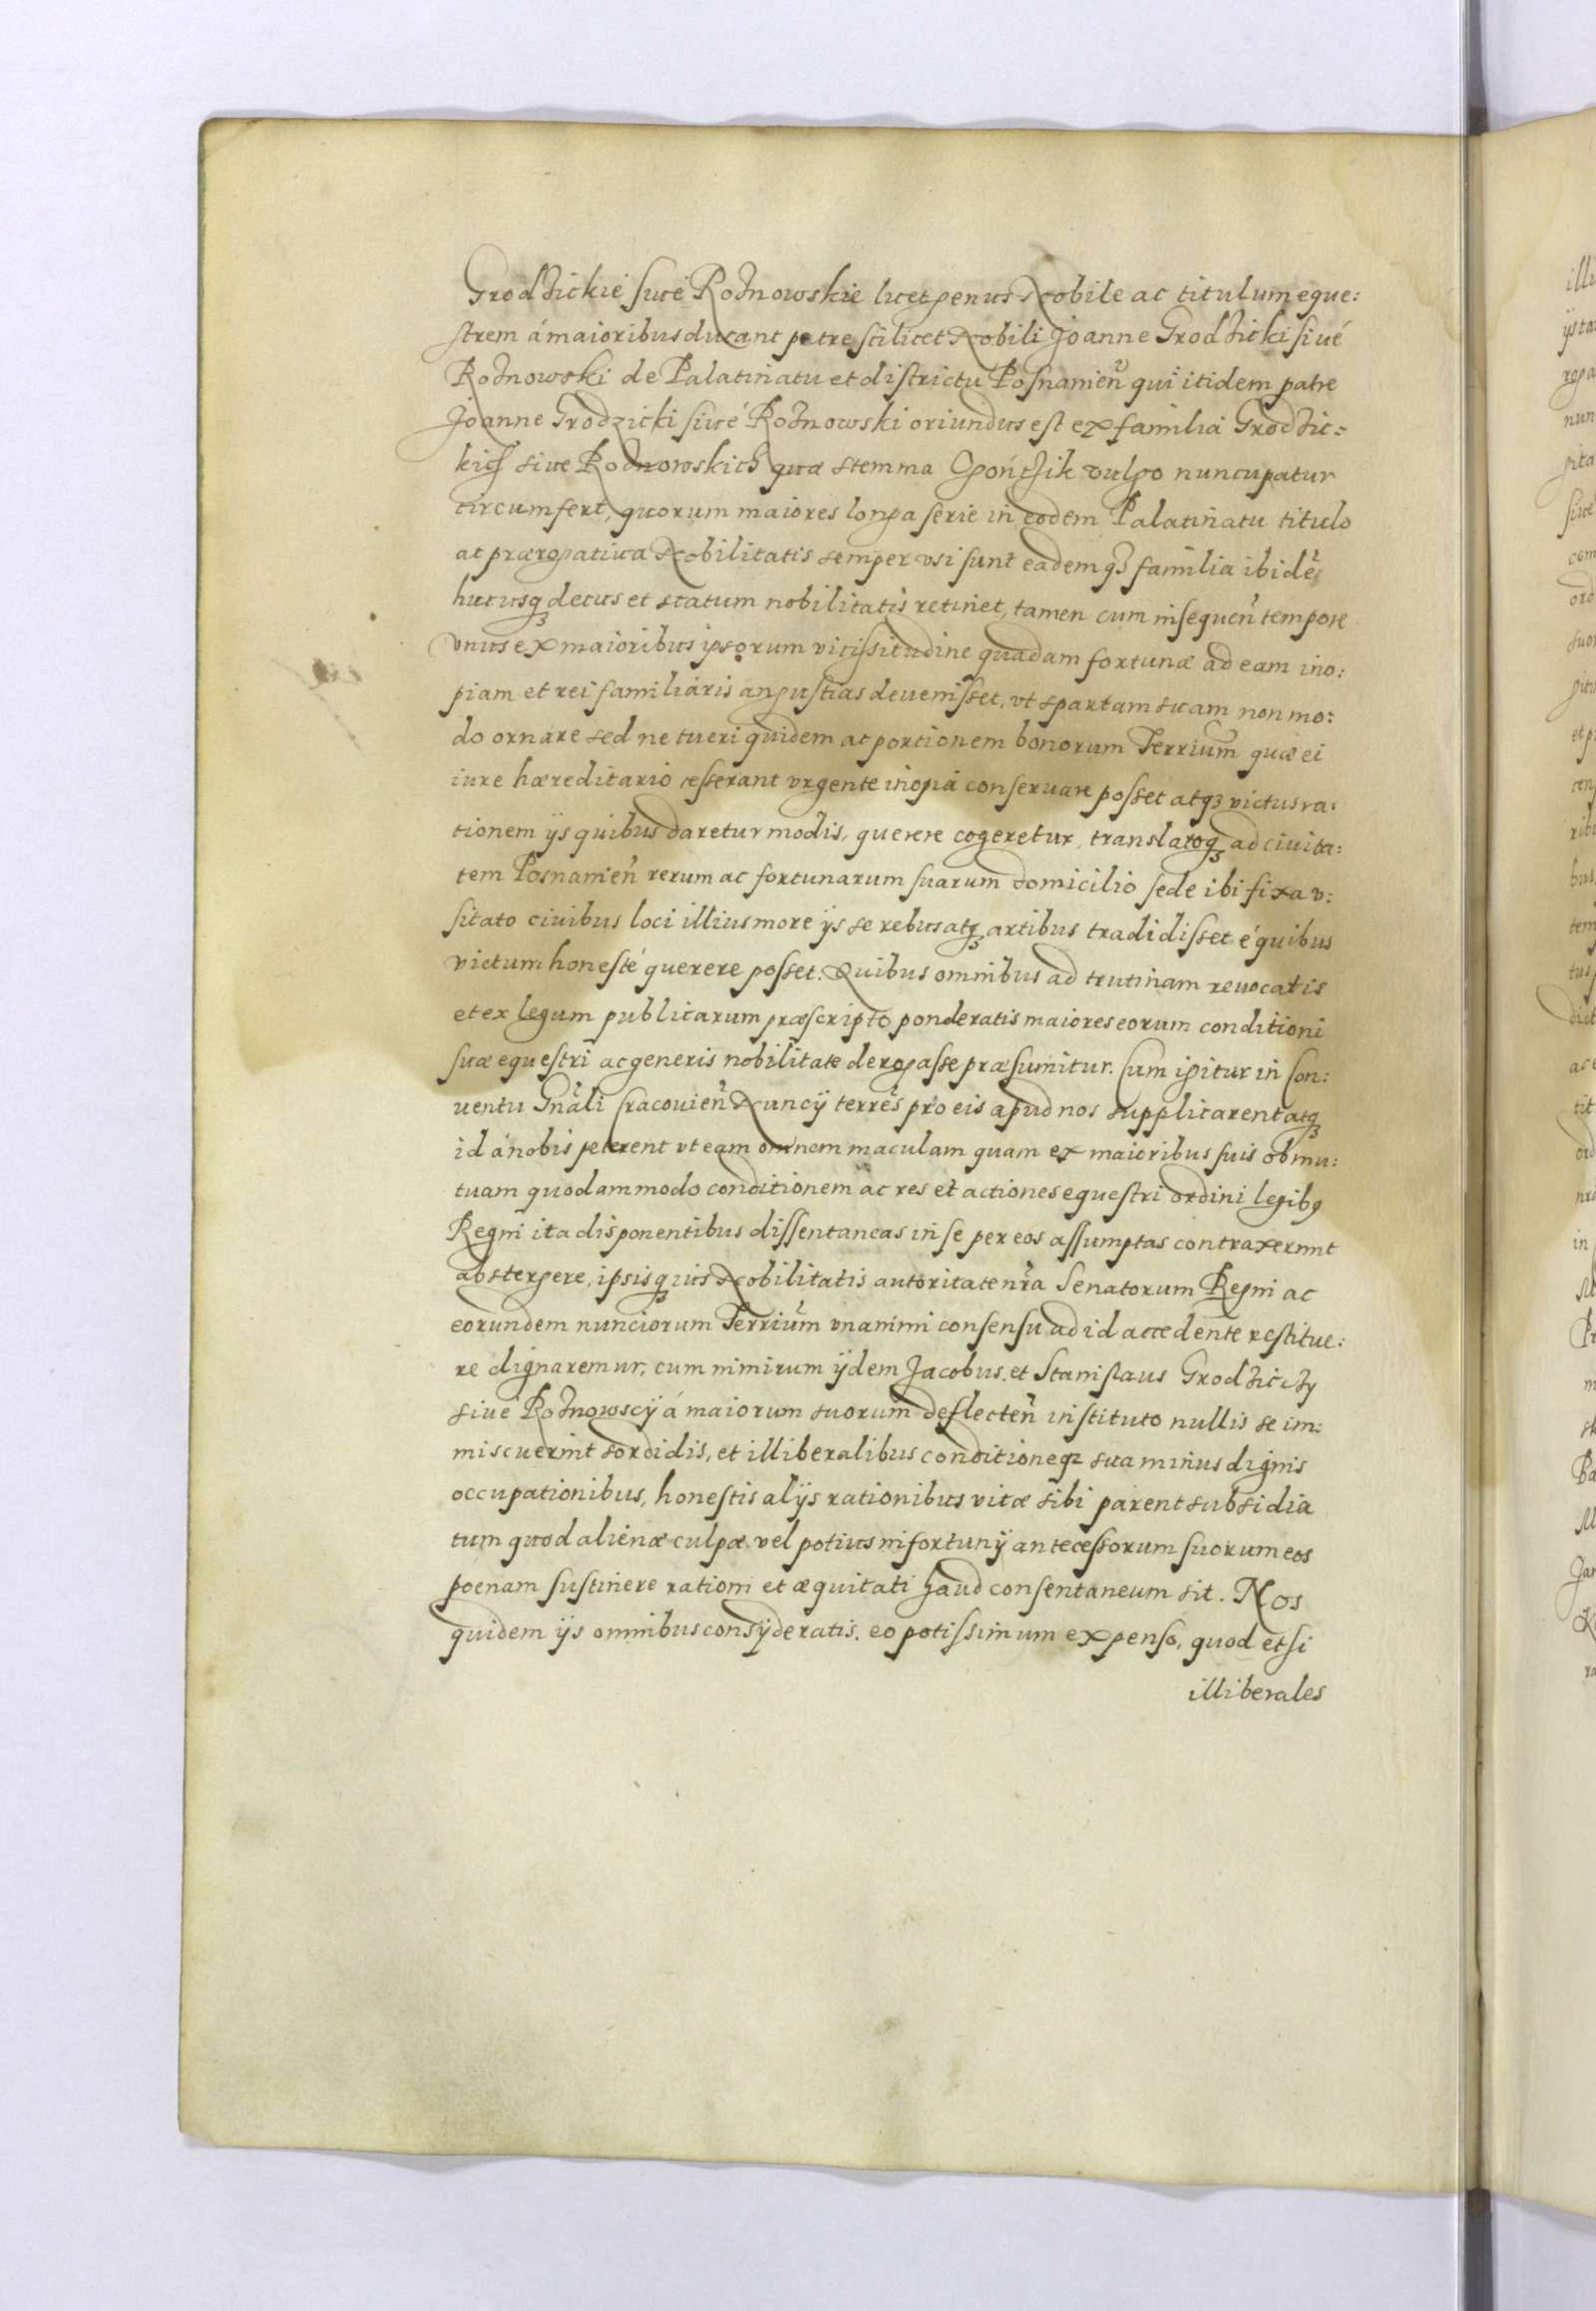 Grodzickie sivé Rożnowskie licet genus Nobile ac titulum eque:
strem á maioribus ducant patre scilicet Nobili Joanne Grodzicki sivé
Rożnowski de Palatinatu et districtu Posnanien̄ qui itidem patre
Joanne Grodzicki sivé Rożnowski oriundus est ex familia Grodzic=
kich sive Rożnowskich quæ stemma Ogończik vulgo nuncupatur
circumfert, quorum maiores longa serie in eodem Palatinatu titulo
ac prærogativa Nobilitatis semper vsi sunt eademqȝ familia ibidē
hucusqȝ decus et statum nobilitatis retinet, tamen cum insequen̄ tempore
vnus ex maioribus ipsorum vicissitudine quadam fortunæ ad eam ino:
piam et rei familiaris angustias devenisset, vt spartam suam non mo:
do ornare sed ne tueri quidem ac portionem bonorum Terrium̄ quæ ei
iure hæreditario cesserant vrgente inopia conseruare posset atqȝ victus ra:
tionem ijs quibus daretur modis, querere cogeretur, translatoqȝ ad ciuita:
tem Posnanien̄ rerum ac fortunarum suarum domicilio sede ibi fixa v:
sitato ciuibus loci illius more ijs se rebus atqȝ artibus tradidisset é quibus
victum honesté querere posset. Quibus omnibus ad trutinam reuocatis
et ex legum publicarum præscripto ponderatis maiores eorum conditioni
suæ equestri ac generis nobilitate derogasse præsumitur. Cum igitur in Con:
uentu Gn̄ali Cracouien̄ Nuncij terres̄ pro eis apud nos supplicarent atqȝ
id á nobis peterent vt eam omnem maculam quam ex maioribus suis ob mu:
tuam quodammodo conditionem ac res et actiones equestri ordini legibꝯ
Regni ita disponentibus dissentaneas in se per eos assumptas contraxerunt
abstergere, ipsisqȝ ius Nobilitatis autoritate nr̄a Senatorum Regni ac
eorundem nunciorum Terrium̄ vnanimi consensu ad id accedente restitue:
re dignaremur, cum nimirum ijdem Jacobus et Stanislaus Grodziczÿ
sivé Rożnowscÿ á maiorum suorum deflecten̄ instituto nullis se im:
miscuerint sordidis, et illiberalibus conditioneqȝ sua minus dignis
occupationibus, honestis alijs rationibus vitæ sibi parent subsidia
tum quod alienæ culpæ vel potius infortunij antecessorum suorum eos
poenam sustinere rationi et æquitati haud consentaneum sit. Nos
quidem ijs omnibus consÿderatis, eo potissimum expenso, quod etsi
illiberales